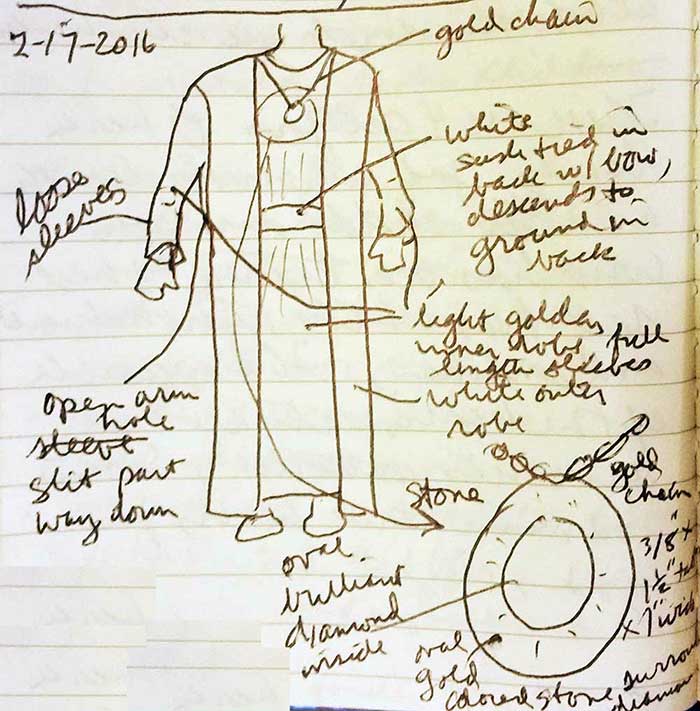 2-17-2016
gold chain
white
sash tied in
back w/ bow,
descends to
ground in
back
loose
sleeves
light golden
inner robe, full
length sleeves
white outer
robe
open arm
hole
sleeve
slit part
way down
stone
gold
chain
3/8" x
1 1/2"
x 1" wide
oval
brilliant
diamond
inside
oval
gold
colored stone